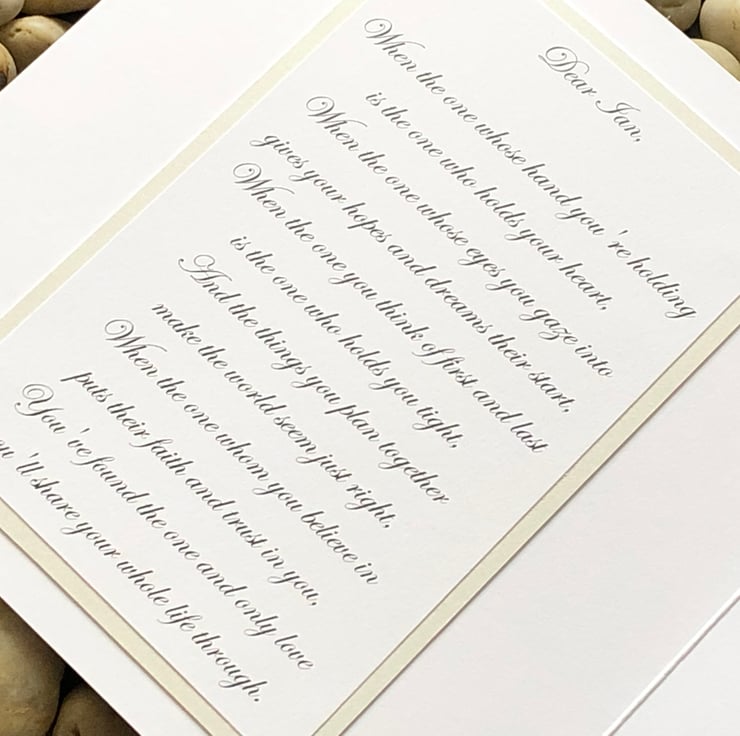 Dear Ian,
When the one whose hand you're holding
is the one who holds your heart,
When the one whose eyes you gaze into
gives your hopes and dreams their start,
When the one you think of first and last
is the one who holds you tight,
And the things you plan together
make the world seem just right,
When the one whom you believe in
puts their faith and trust in you,
You've found the one and only love
ou'll share your whole life through.